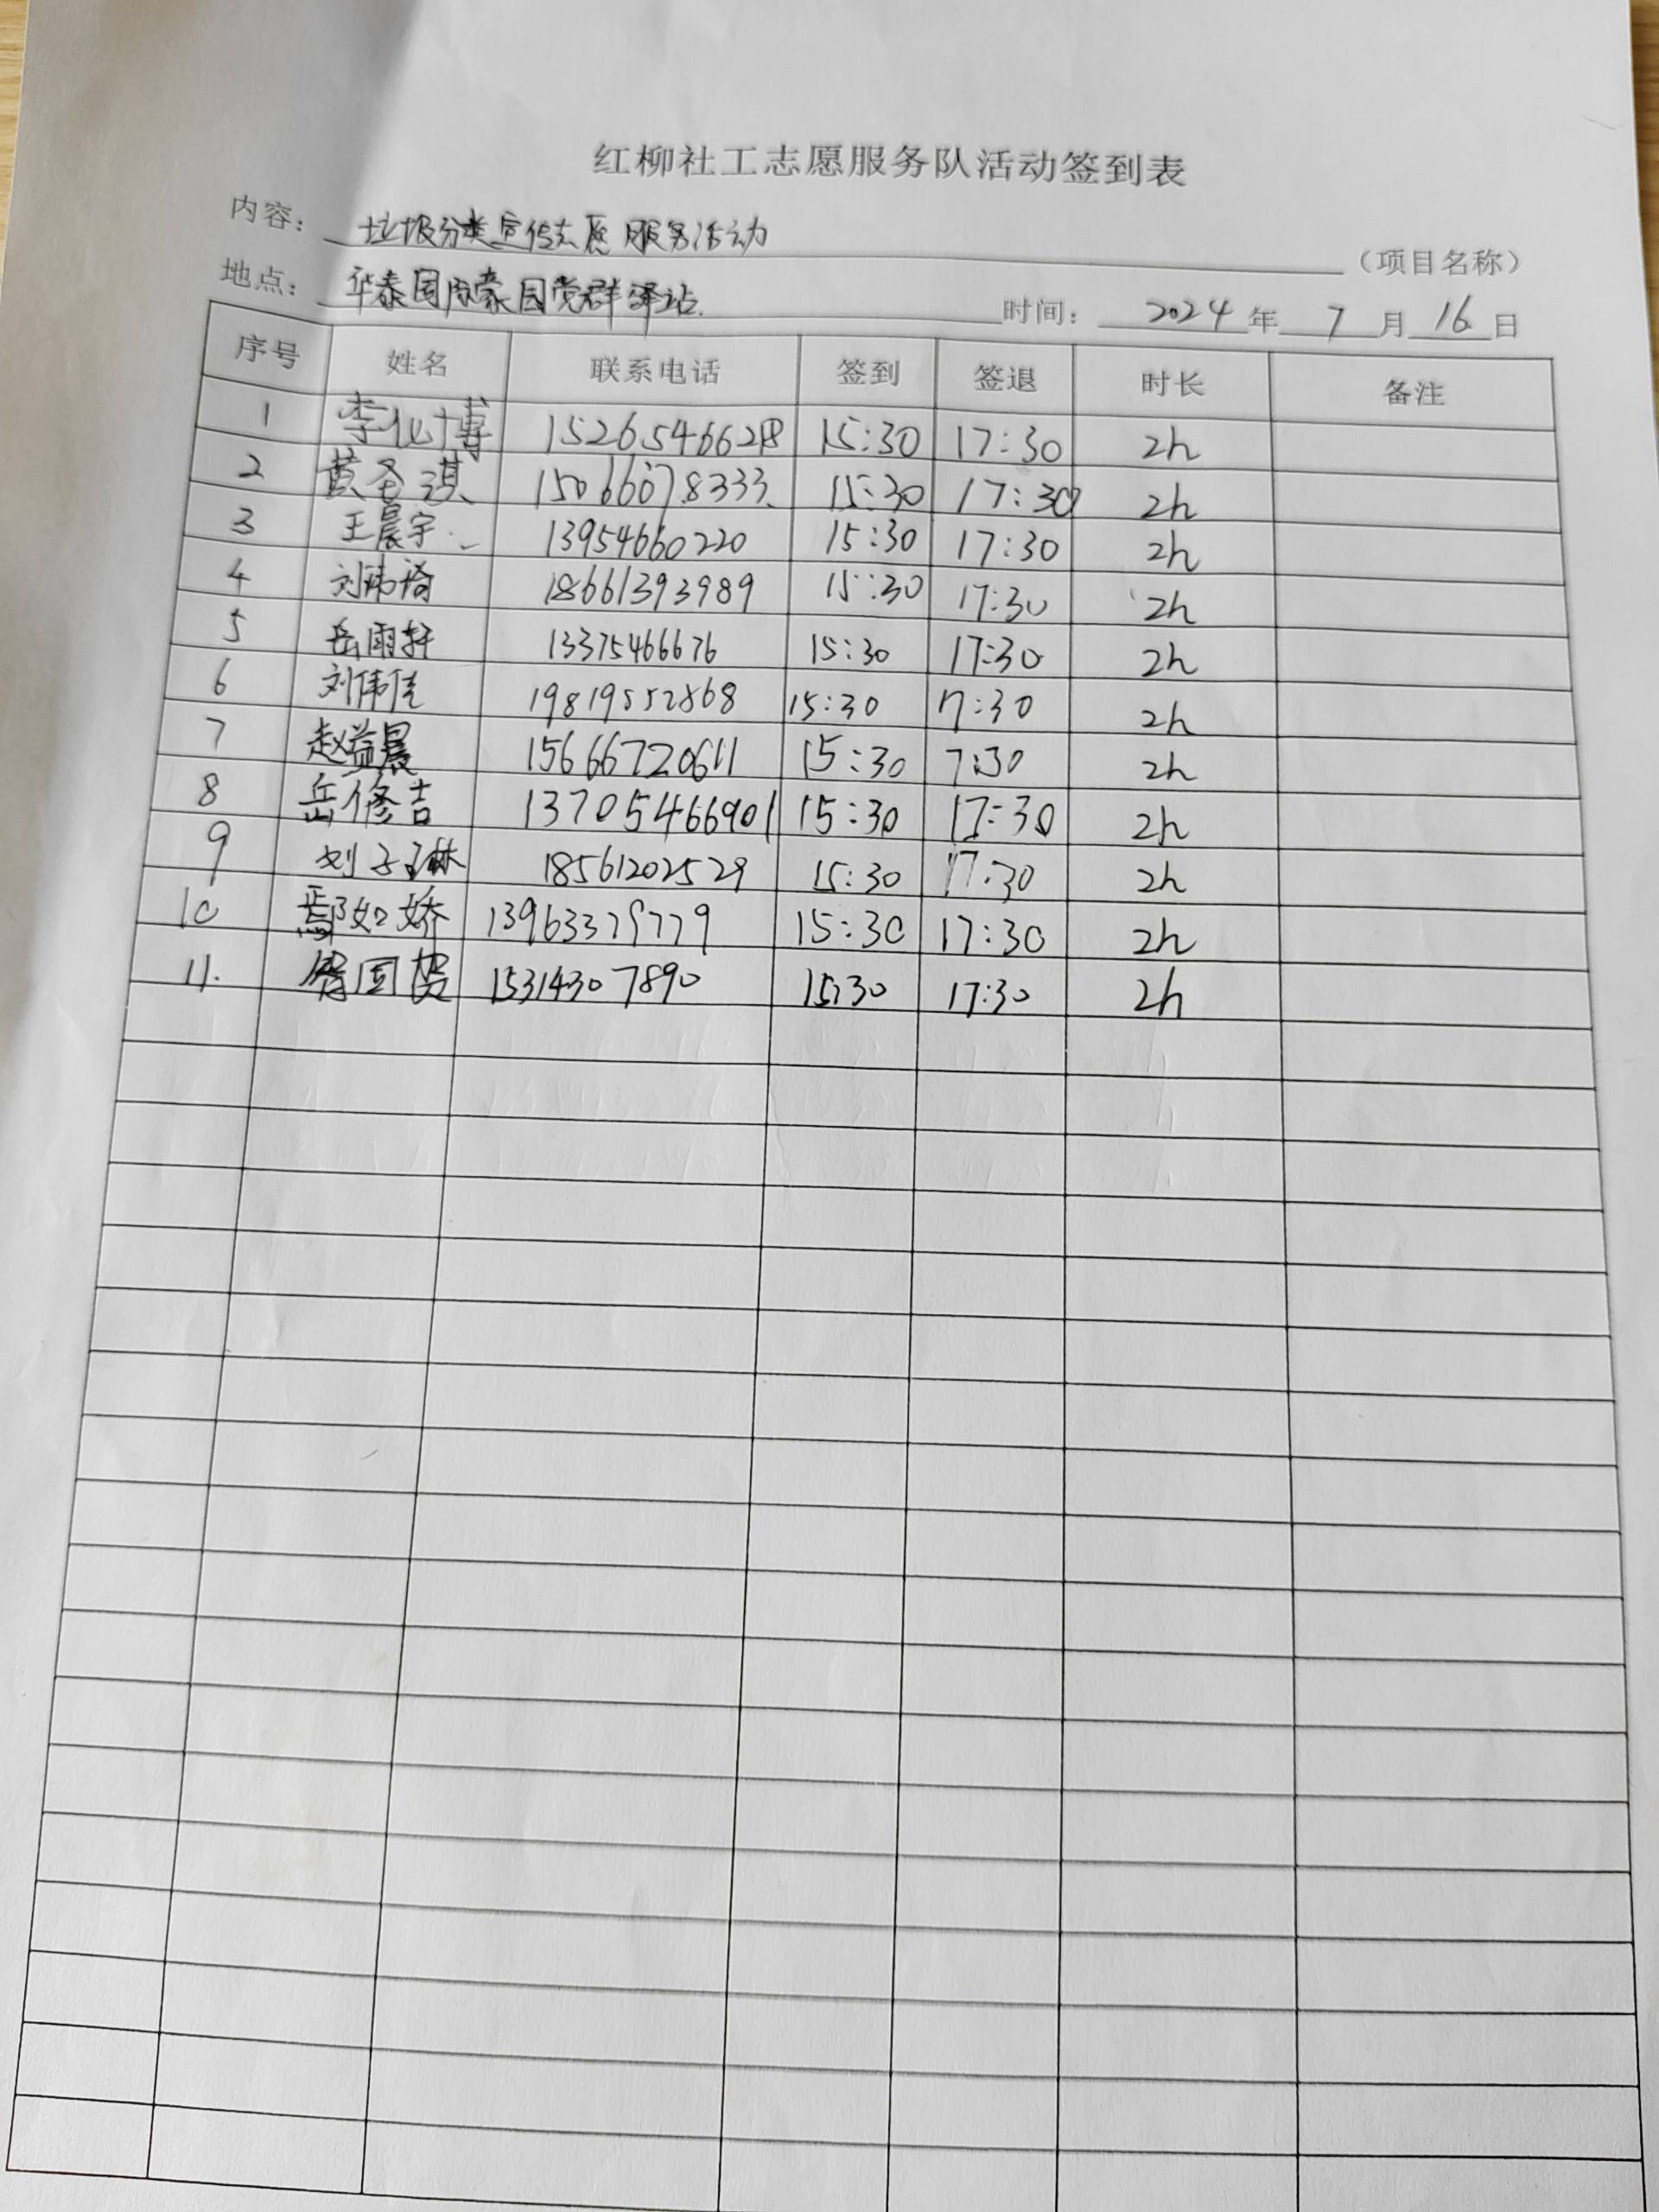 红柳社工志愿服务队活动签到表
内容： 垃圾分类宣传志愿服务活动 （项目名称）
地点： 华泰国际豪园党群驿站. 时间： 2024 年 7 月 16 日
序号 姓名 联系电话 签到 签退 时长 备注
1 李化博 15:30 17:30 2h
2 黄圣淇 15066078333 15:30 17:30 2h
3 王晨宇 13954660220 15:30 17:30 2h
4 刘祎琦 18661393989 15:30 17:30 2h
5 岳雨轩 13375466676 15:30 17:30 2h
6 刘伟佳 19819552868 15:30 17:30 2h
7 赵益晨 15666720611 15:30 7:30 2h
8 岳修吉 13705466901 15:30 17:30 2h
9 刘子琳 18561202529 15:30 17:30 2h
10 鄢如娇 15:30 17:30 2h
11. 15314307890 15:30 17:30 2h